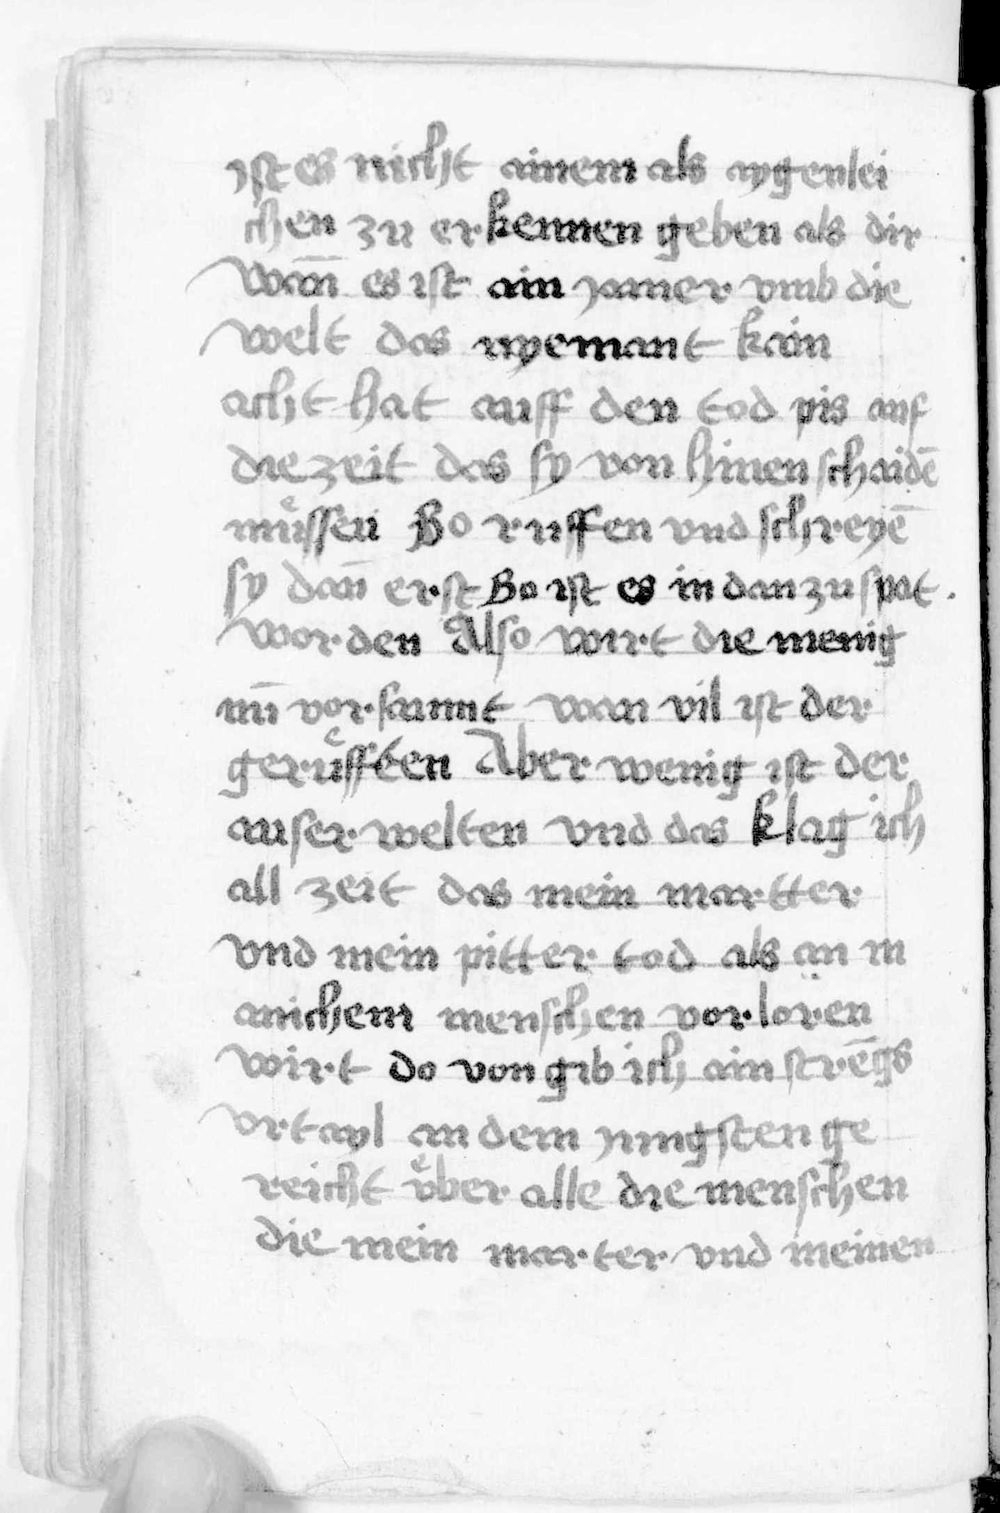 ist es nicht ainem als aygenlei
chen zu erkennen geben als dir
wan̄ es ist ain jamer vmb die
welt das nyemant kain
acht hat auff den tod pis auf
die zeit das sy von hinen schaidē
müͤssen So ruffen vnd schreyē
sy dan̄ erst So ist es in dan zu spat
worden Also wirt die menig
nū vorsaumt wan vil ist der
gerüͤfften Aber wenig ist der
auser welten vnd das klag ich
all zeit das mein martter
vnd mein pitter tod als an m
anichem menschen vorloren
wirt do von gib ich ain strēgs
vrtayl an dem jungsten ge
reicht vͤber alle die menschen
die mein marter vnd meinen